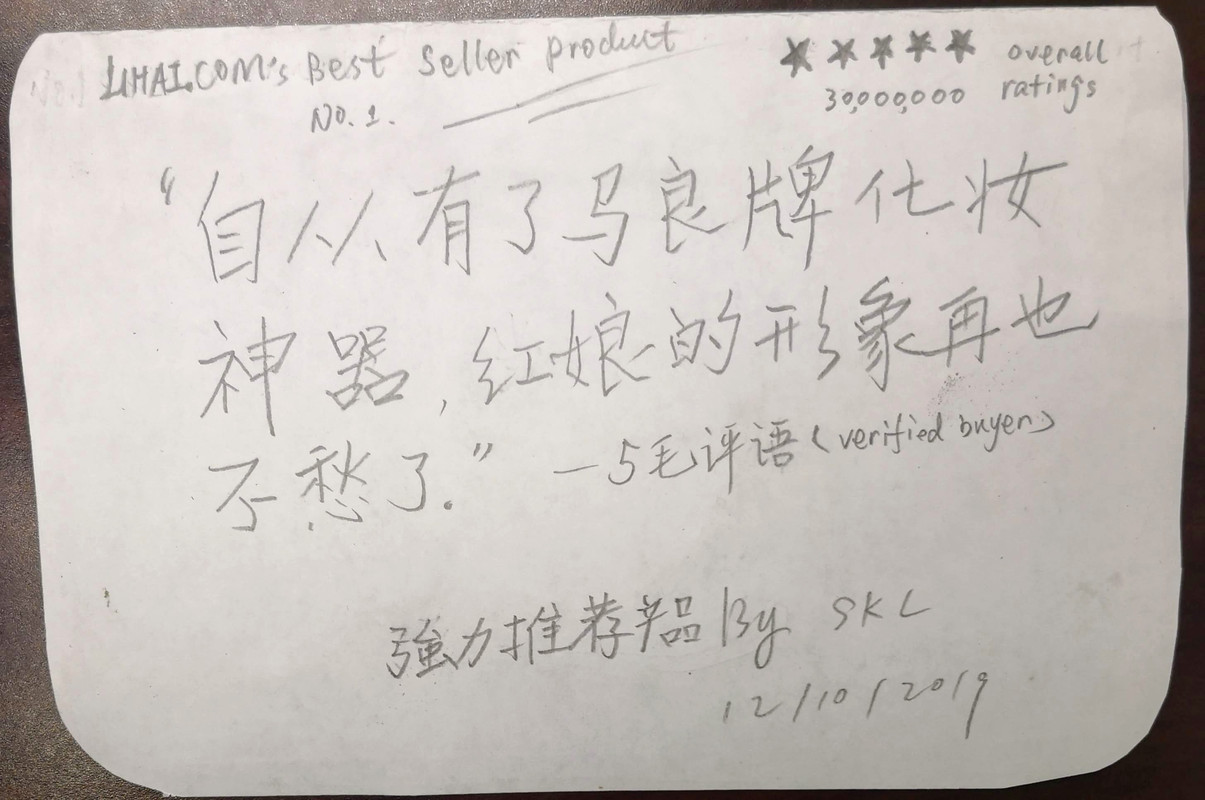 LIHAI.COM's Best Seller product
No. 1.
★★★★★ overall
30,000,000 ratings
“自从有了马良牌化妆
神器,红娘的形象再也
不愁了.”
—5毛评语(verified buyer)
強力推荐产品 By SKL
12/10/2019